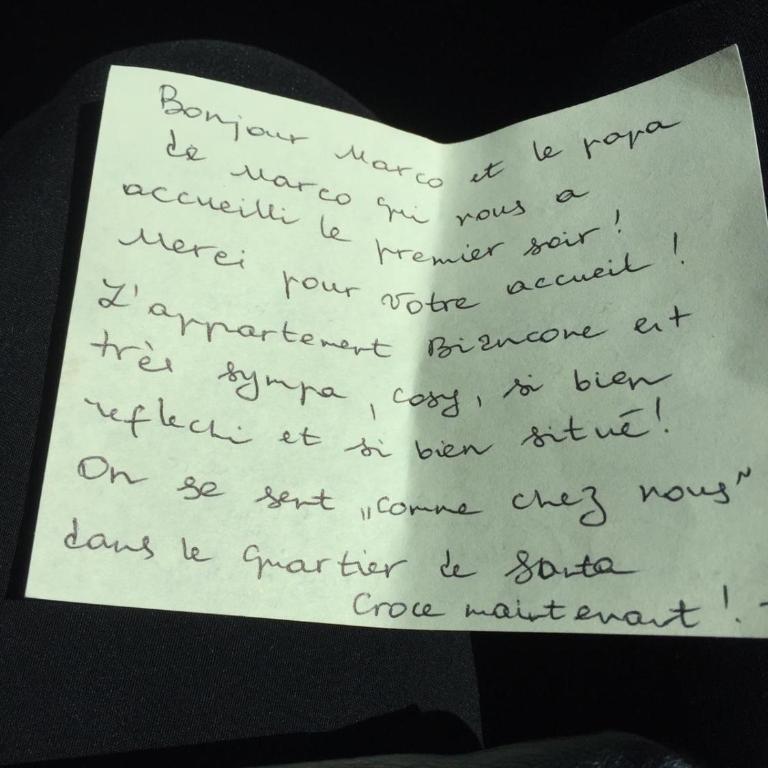 Bonjour Marco et le papa
de Marco qui nous a
accueilli le premier soir !
Merci pour votre accueil !
L'appartement Biancone est
très sympa, cosy, si bien
reflechi et si bien situé !
On se sent „comme chez nous"
dans le quartier de Santa
Croce maintenant ! -